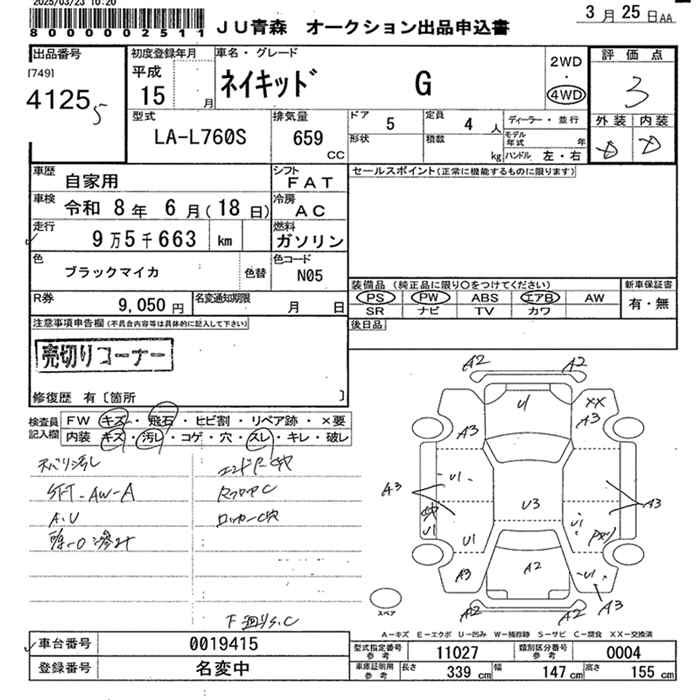 2025/03/23 10:20
8000002511 JU青森 オークション出品申込書 3月25日AA
出品番号 初度登録年月 車名・グレード 2WD 評価点
[749] 平成 ネイキッド G ・ 3
4125 5 15 月 4WD 外装 内装
型式 排気量 ドア 5 定員 4 人 ディーラー・並行
LA-L760S 659 CC 形状 積載 kg モデル年式 年
ハンドル 左・右
車歴 自家用 シフト FAT セールスポイント(正常に機能するものに限ります)
車検 令和 8年 6月(18日) 冷房 AC
走行 9万5千663 km 燃料 ガソリン
色 ブラックマイカ 色替 色コード N05
装備品 (純正品に限り○をつけてください) 新車保証書
R券 9,050円 名変通知期限 月 日 PS PW ABS エアB AW 有・無
SR ナビ TV カワ
注意事項申告欄(不具合内容等は具体的に記入して下さい) 後日品
売切りコーナー
修復歴 有〔箇所 〕
検査員記入欄 FW キズ・飛石・ヒビ割・リペア跡・×要
内装 キズ・汚レ・コゲ・穴・スレ・キレ・破レ
A2 A2
U1 XX
A3 A3
U1 U1
A3 U3 A3
U1 U1
A3 A2 U1
A2 A2 A3
スペア
A-キズ E-エクボ U-凹み W-補修跡 S-サビ C-腐食 XX-交換済
車台番号 0019415 型式指定番号 参考 11027 類別区分番号 参考 0004
登録番号 名変中 車庫証明用 参考 長さ 339 cm 幅 147 cm 高さ 155 cm